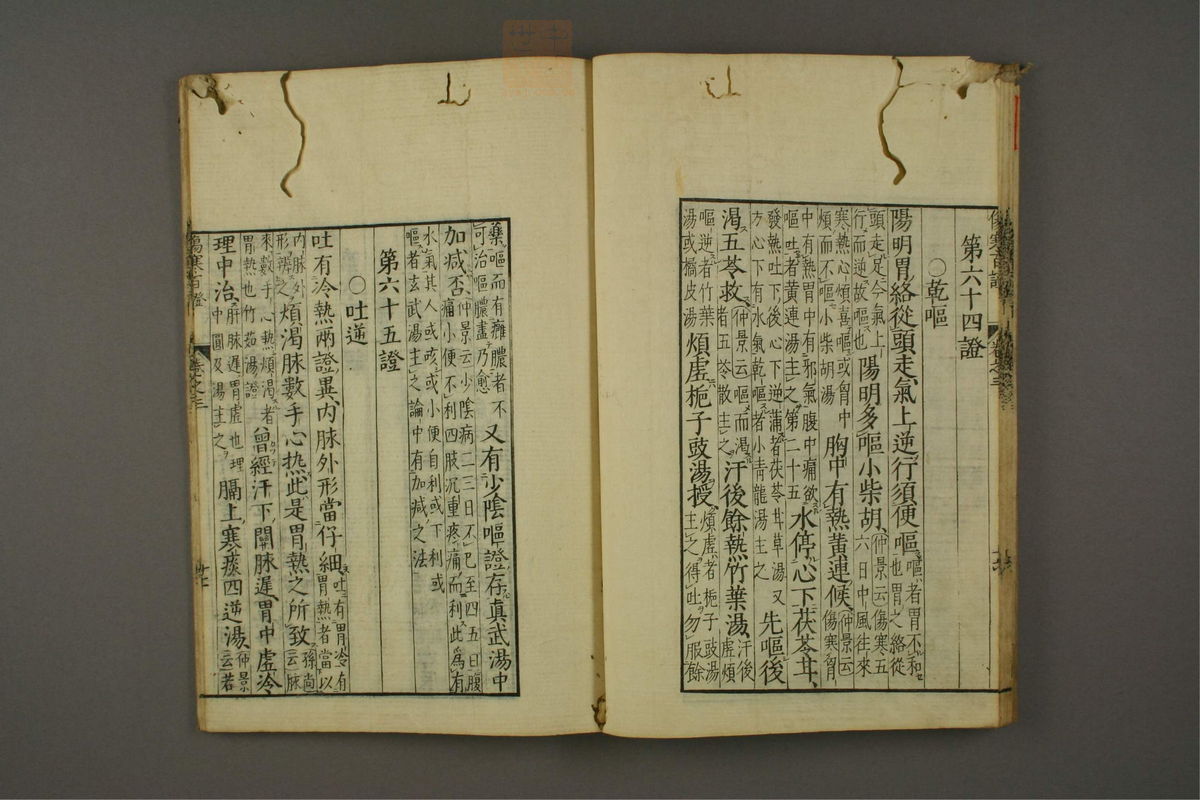 傷寒百證 卷之三
第六十四證
○乾嘔
陽明胃絡從頭走氣上逆行須便嘔嘔者胃不和也胃之絡從
頭走足今氣上行而逆故嘔也陽明多嘔小柴胡仲景云傷寒五六日中風往來
寒熱心煩喜嘔或胷中煩而不嘔小柴胡湯胸中有熱黃連候仲景云傷寒胷
中有熱胃中有邪氣腹中痛欲嘔吐者黃連湯主之第二十五水停心下茯苓甘
發熱吐下後心下逆滿者茯苓甘草湯又方心下有水氣乾嘔者小青龍湯主之先嘔後
渴五苓救仲景云嘔而渴者五苓散主之汗後餘熱竹葉湯汗後虛煩
嘔逆者竹葉湯或橘皮湯煩虛梔子豉湯授煩虛者梔子豉湯主之得吐勿服餘
藥嘔而有癰膿者不可治嘔膿盡乃愈又有少陰嘔證存真武湯中
加減否仲景云少陰病二三日不已至四五日腹痛小便不利四肢沉重疼痛而利此為有
水氣其人或咳或小便自利或下利或嘔者玄武湯主之論中有加減之法
第六十五證
○吐逆
吐有冷熱兩證異內脉外形當仔細吐有胃冷有胃熱者當以
內脉外形辨之煩渴脉數手心热此是胃熱之所致孫尚云脉
來數手心熱煩渴者胃熱也竹茹湯證曾經汗下關脉遲胃中虛冷
理中治關脉遲胃虛也理中圓及湯主之膈上寒痰四逆湯仲景云若
傷寒百證 卷之三